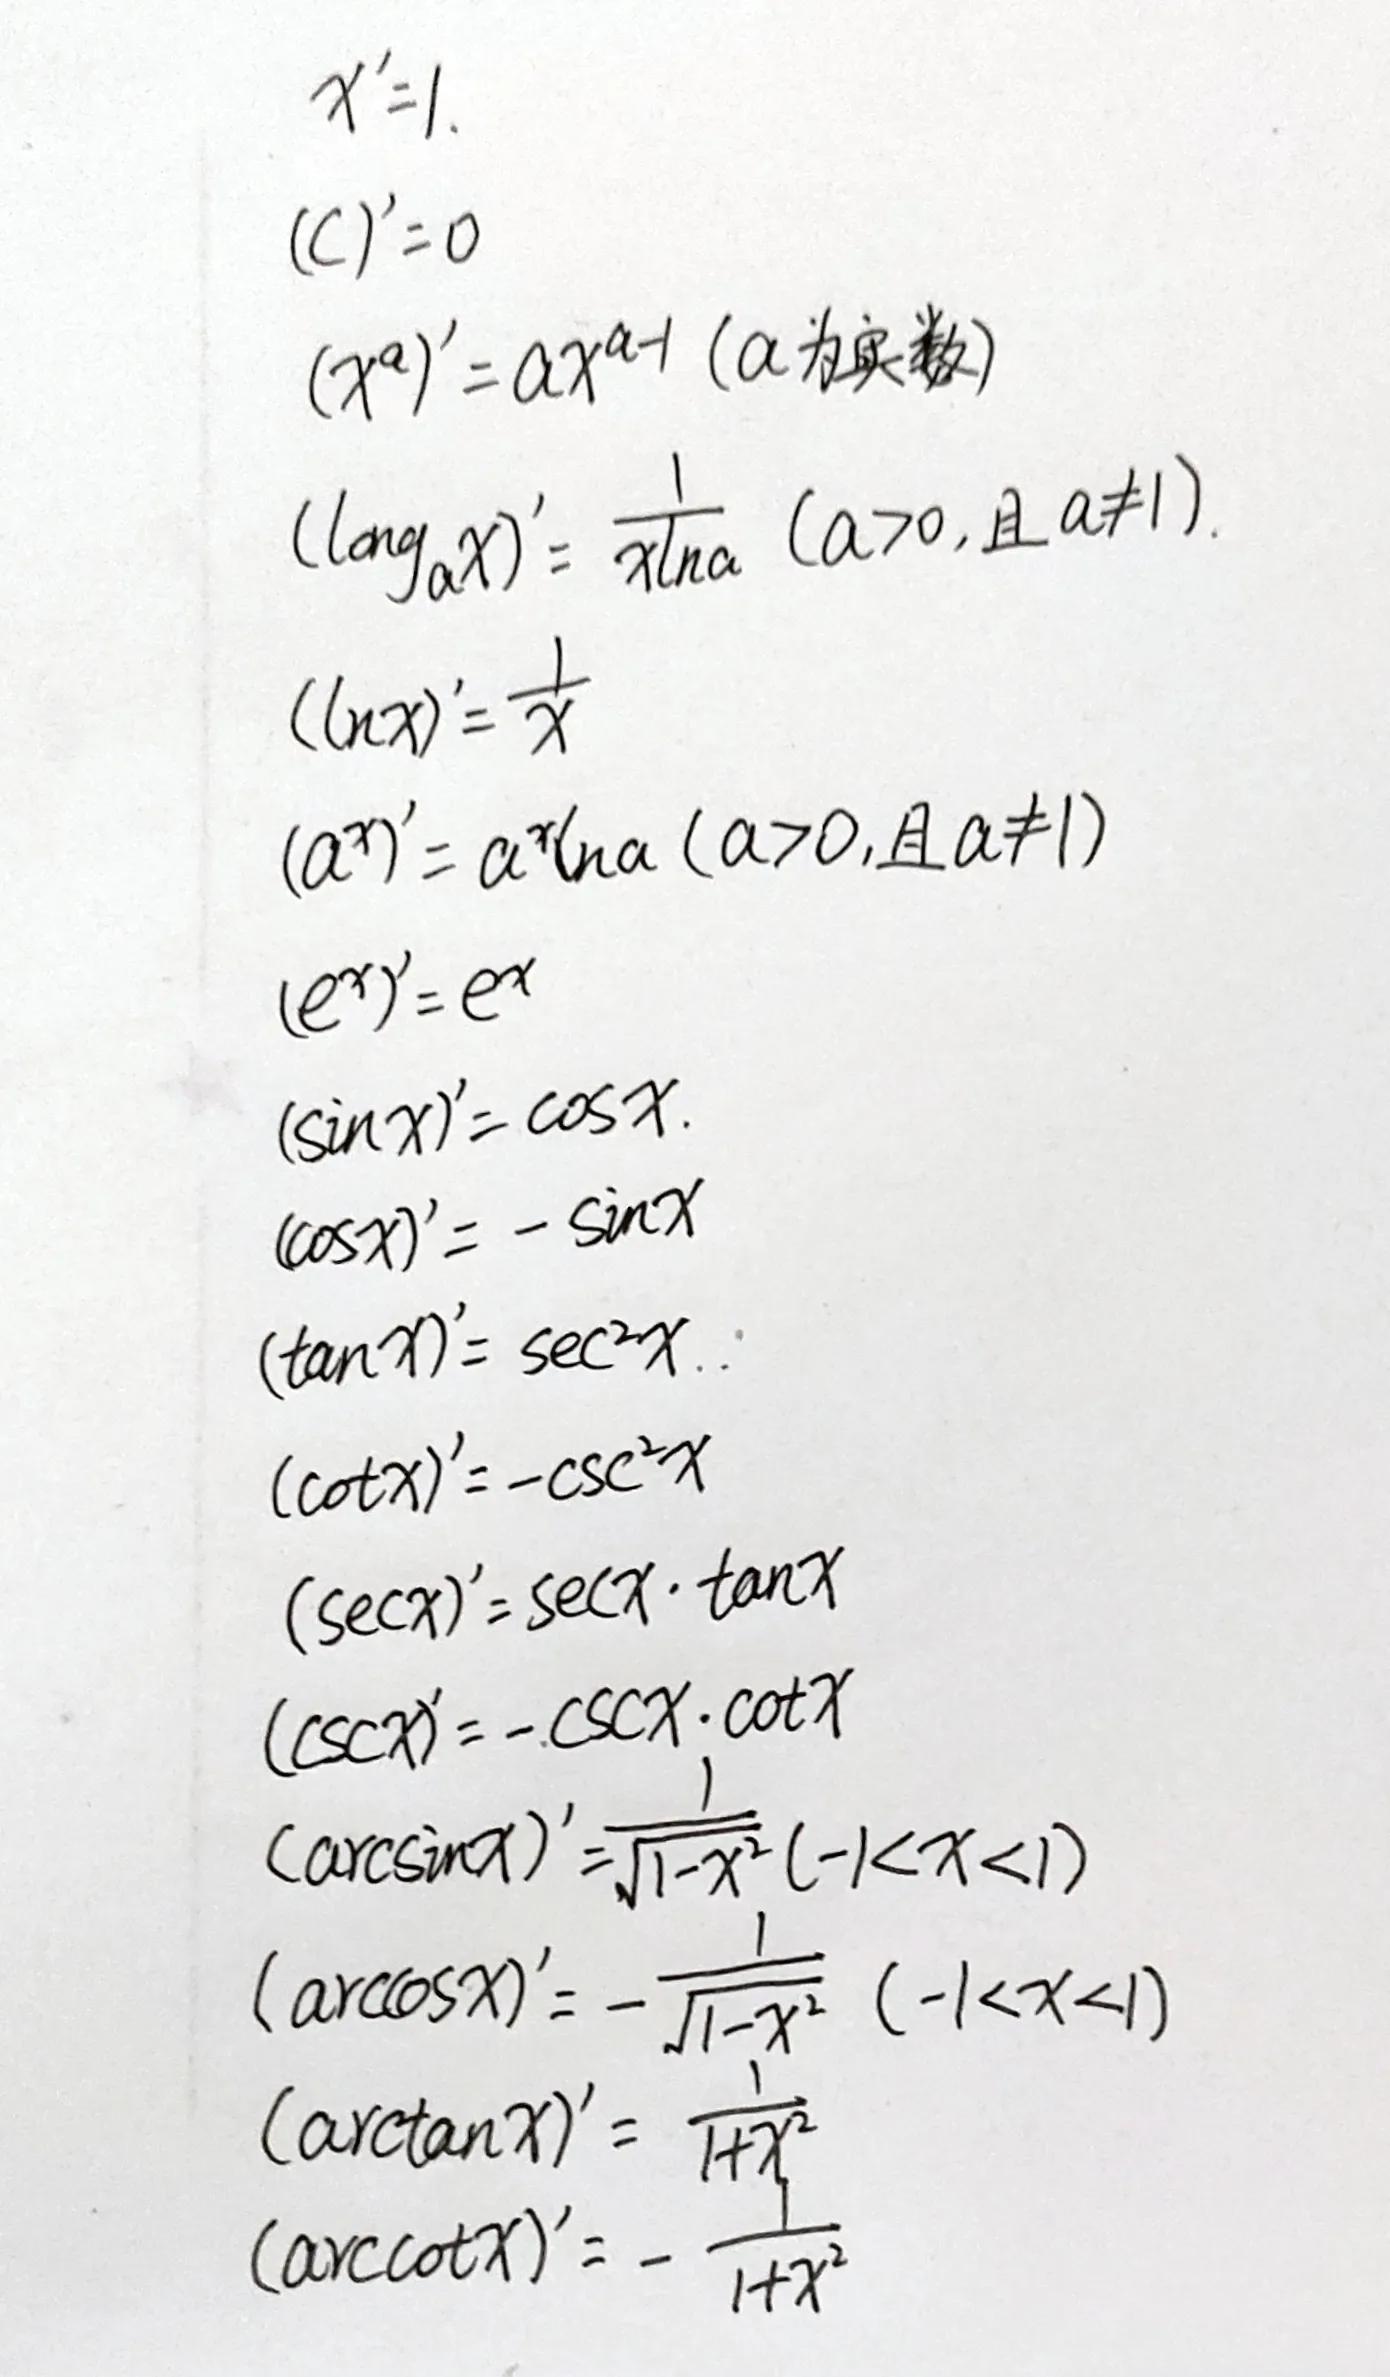 x'=1.
(C)'=0
(xᵃ)'=axᵃ⁻¹ (a为实数)
(longₐx)'= 1/xlna (a>0,且a≠1).
(lnx)'= 1/x
(aˣ)'=aˣlna (a>0,且a≠1)
(eˣ)'=eˣ
(sinx)'=cosx.
(cosx)'=-sinx
(tanx)'=sec²x..
(cotx)'=-csc²x
(secx)'=secx·tanx
(cscx)'=-cscx·cotx
(arcsinx)'= 1/√(1-x²) (-1<x<1)
(arccosx)'=- 1/√(1-x²) (-1<x<1)
(arctanx)'= 1/(1+x²)
(arccotx)'=- 1/(1+x²)